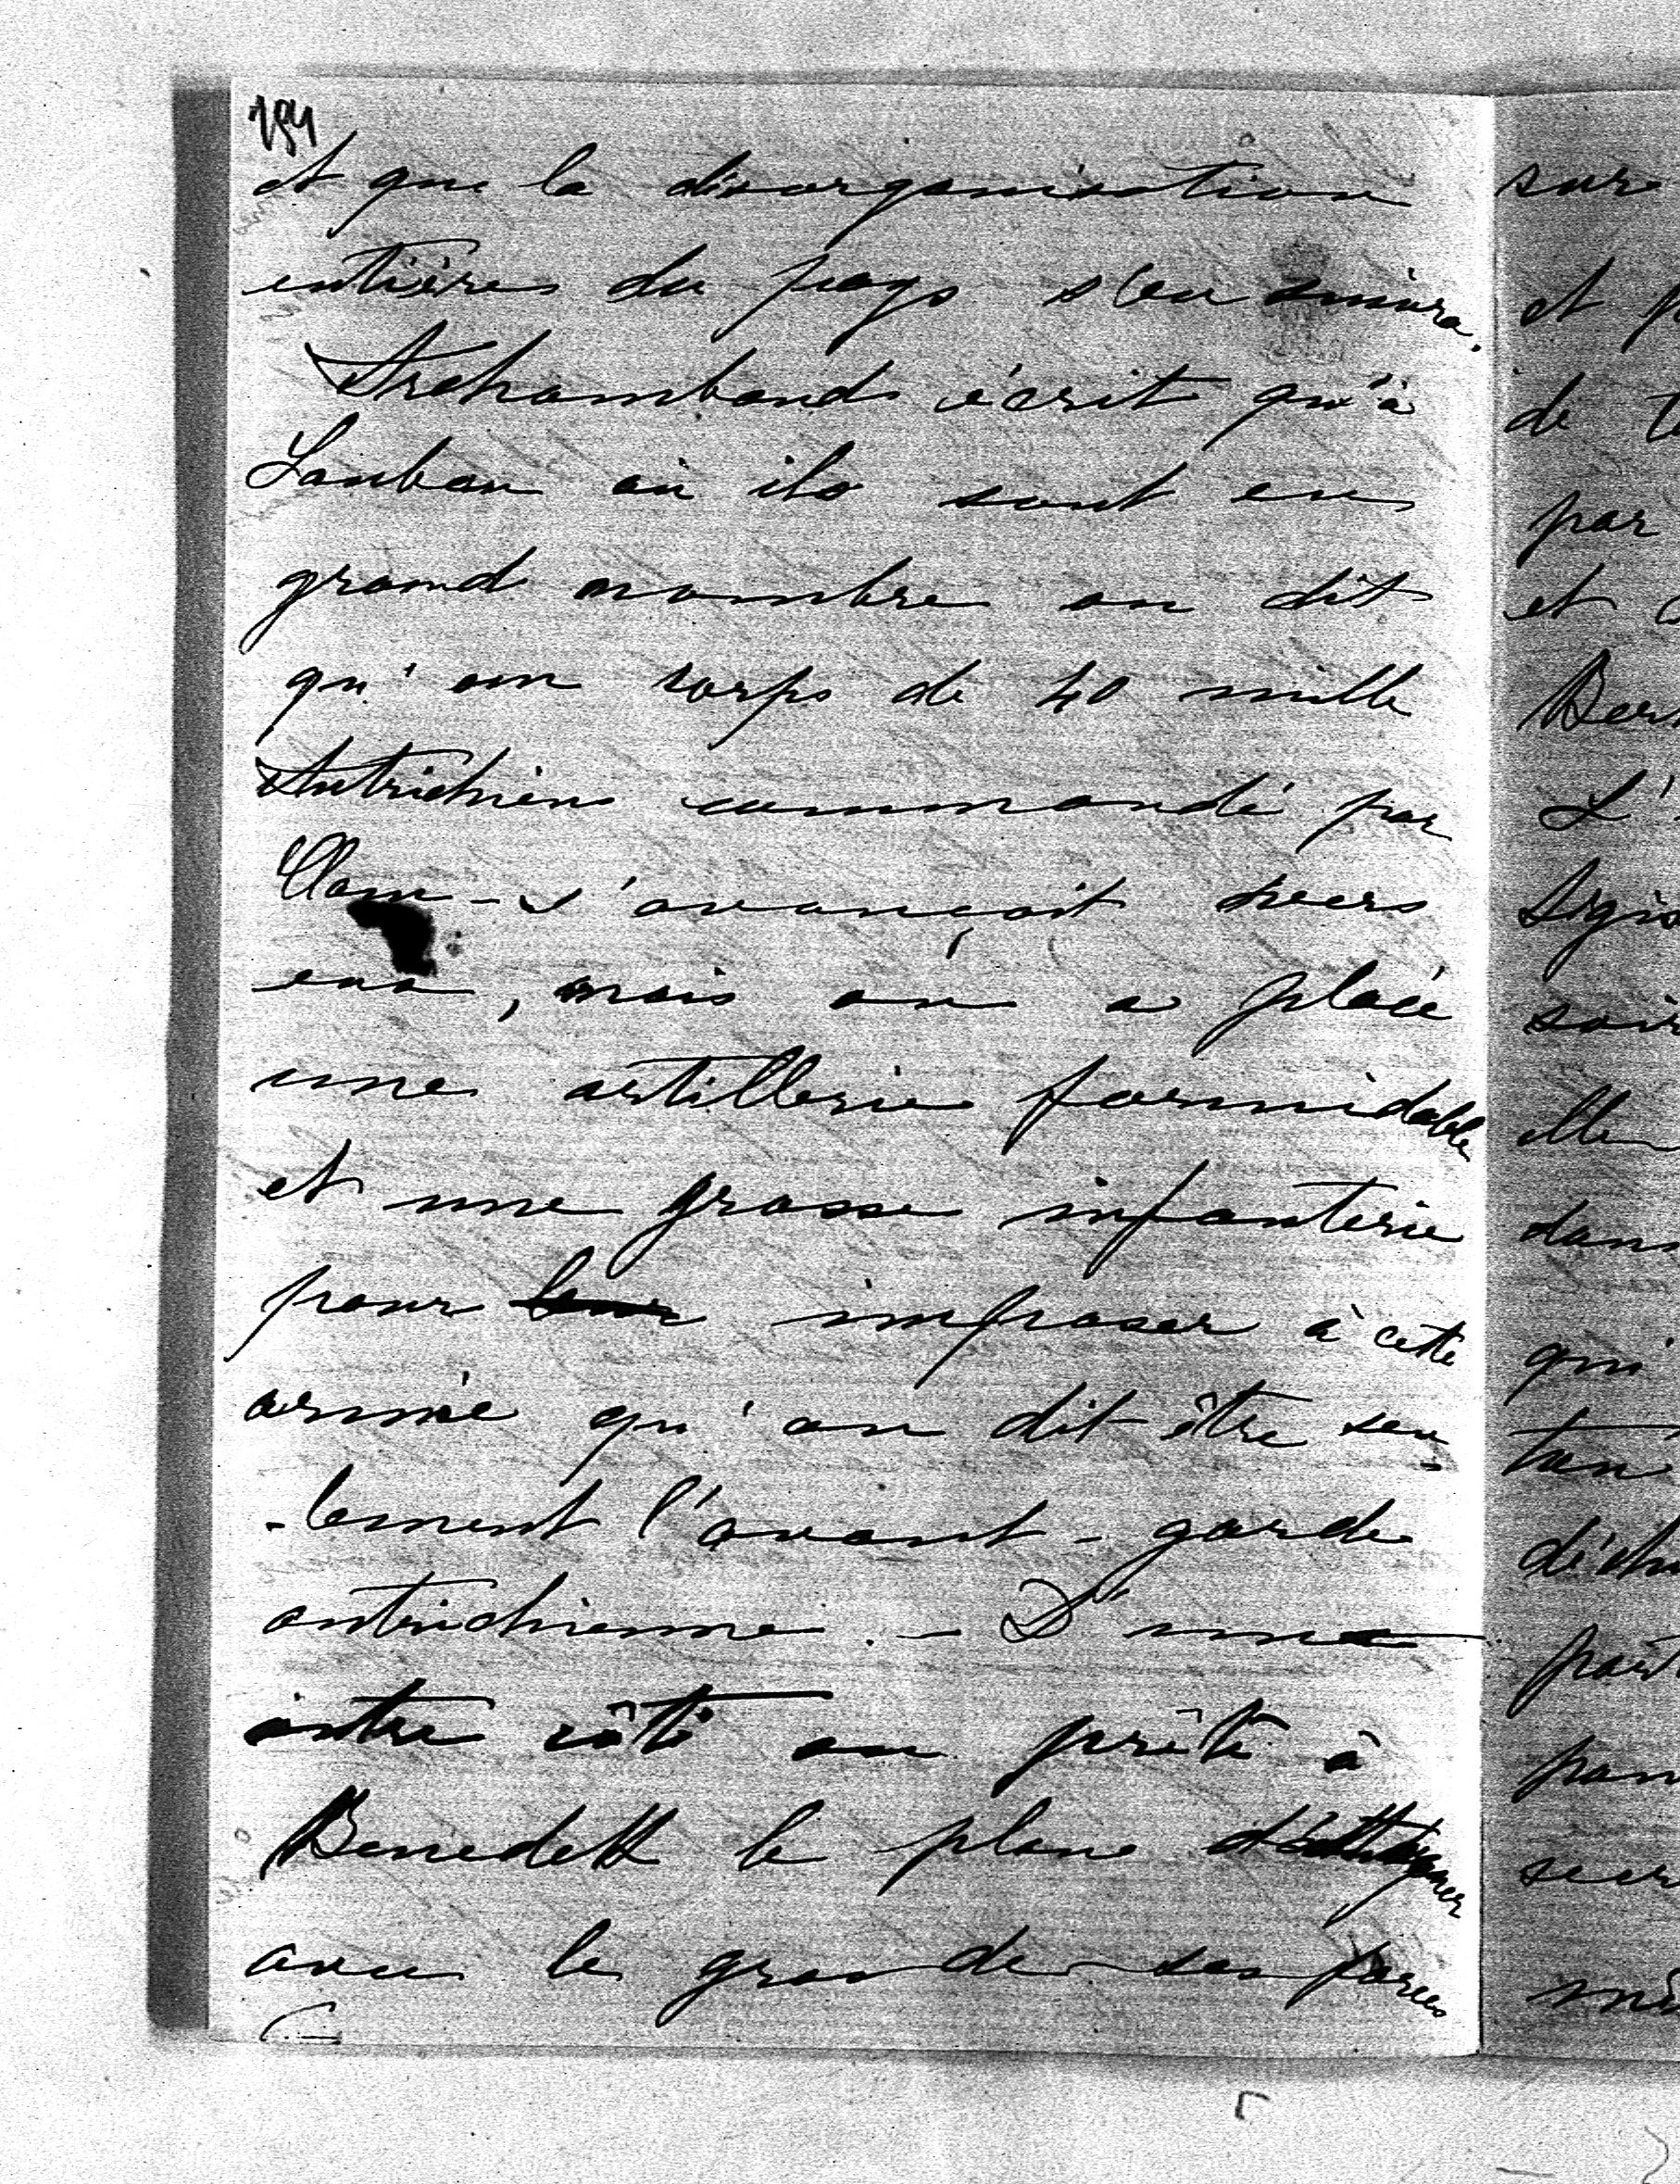 194
et que la désorganisation
entière du pays s'en suivra.
Archambaud écrit qu'à
Lauban où ils sont en
grand nombre on dit
qu'un corps de 40 mille
Autrichiens commandé par
Clam - s'avançait vers
eux, mais on a placé
une artillerie formidable
et une grosse infanterie
pour leur imposer à cette
armée qu'on dit être seu-
-lement l'avant-garde
autrichienne. - D'un
autre côté on prête à
Benedek le plan
avec le gros de ses forces
sur
et p
de t
par
et
Ber
L'
sign
soi
elle
dans
qui
tan
déch
part
pour
ser